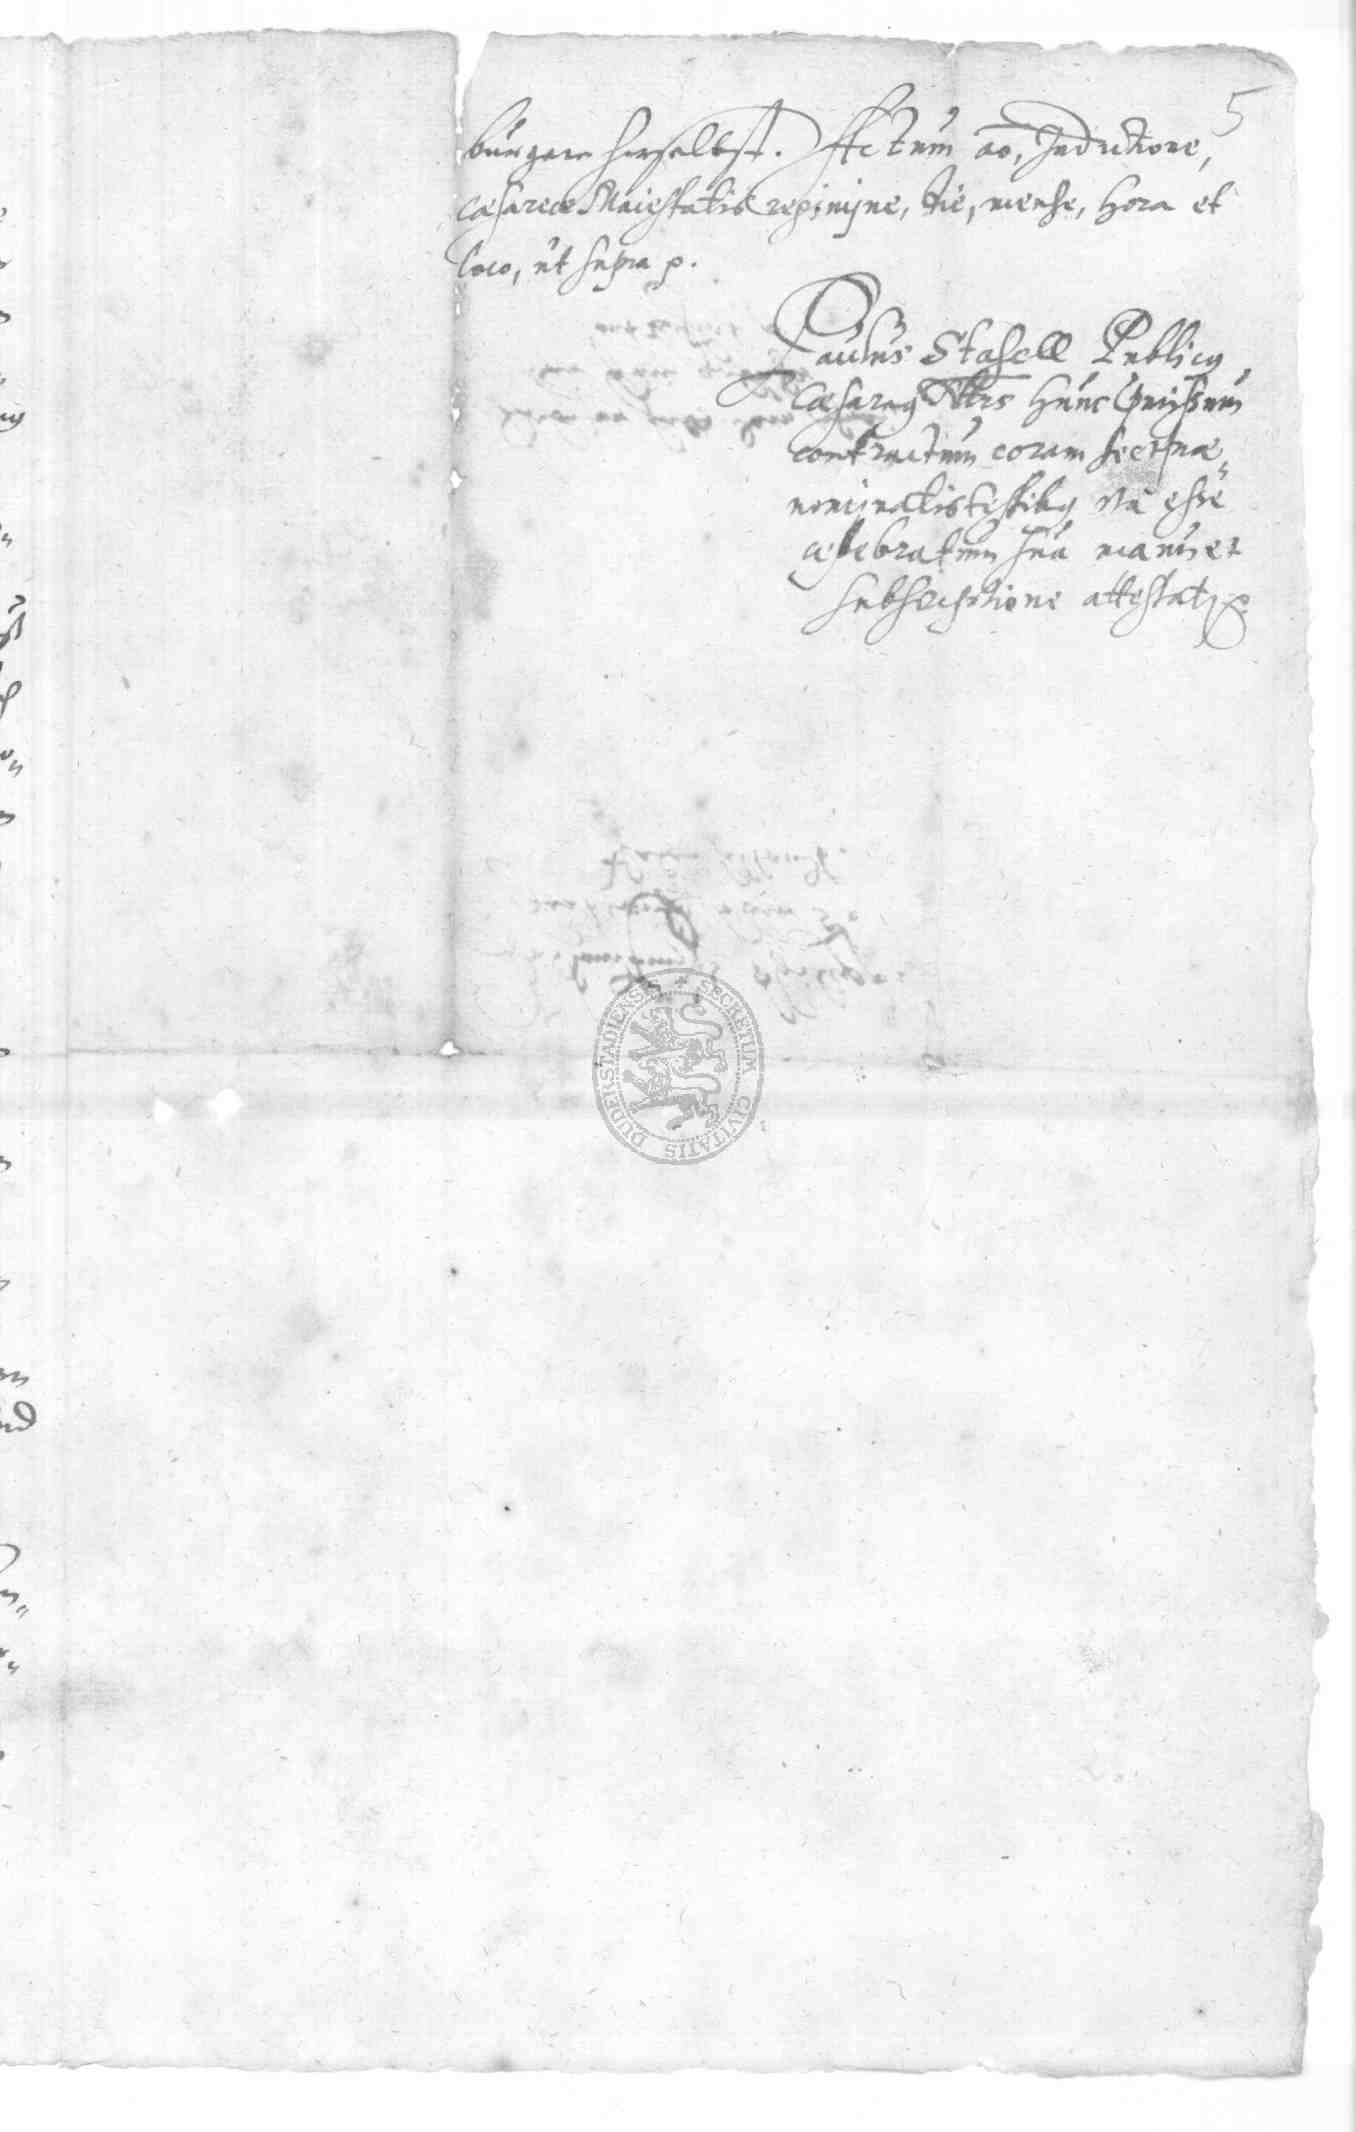 5
bürgere herselbst. Actum ao, Indictione,
cæsareæ Maiestatis regimine, die, mense, Hora et
loco, ut supra p.
Paulus Stasell Publicq
Cæsareq Ntrs Hunc
contractum coram hec præ„
nominatis testibq ita esse
celebratum sua manu et
subscriptione attestat
SECRETUM CIVITATIS DUDERSTADIENSIS